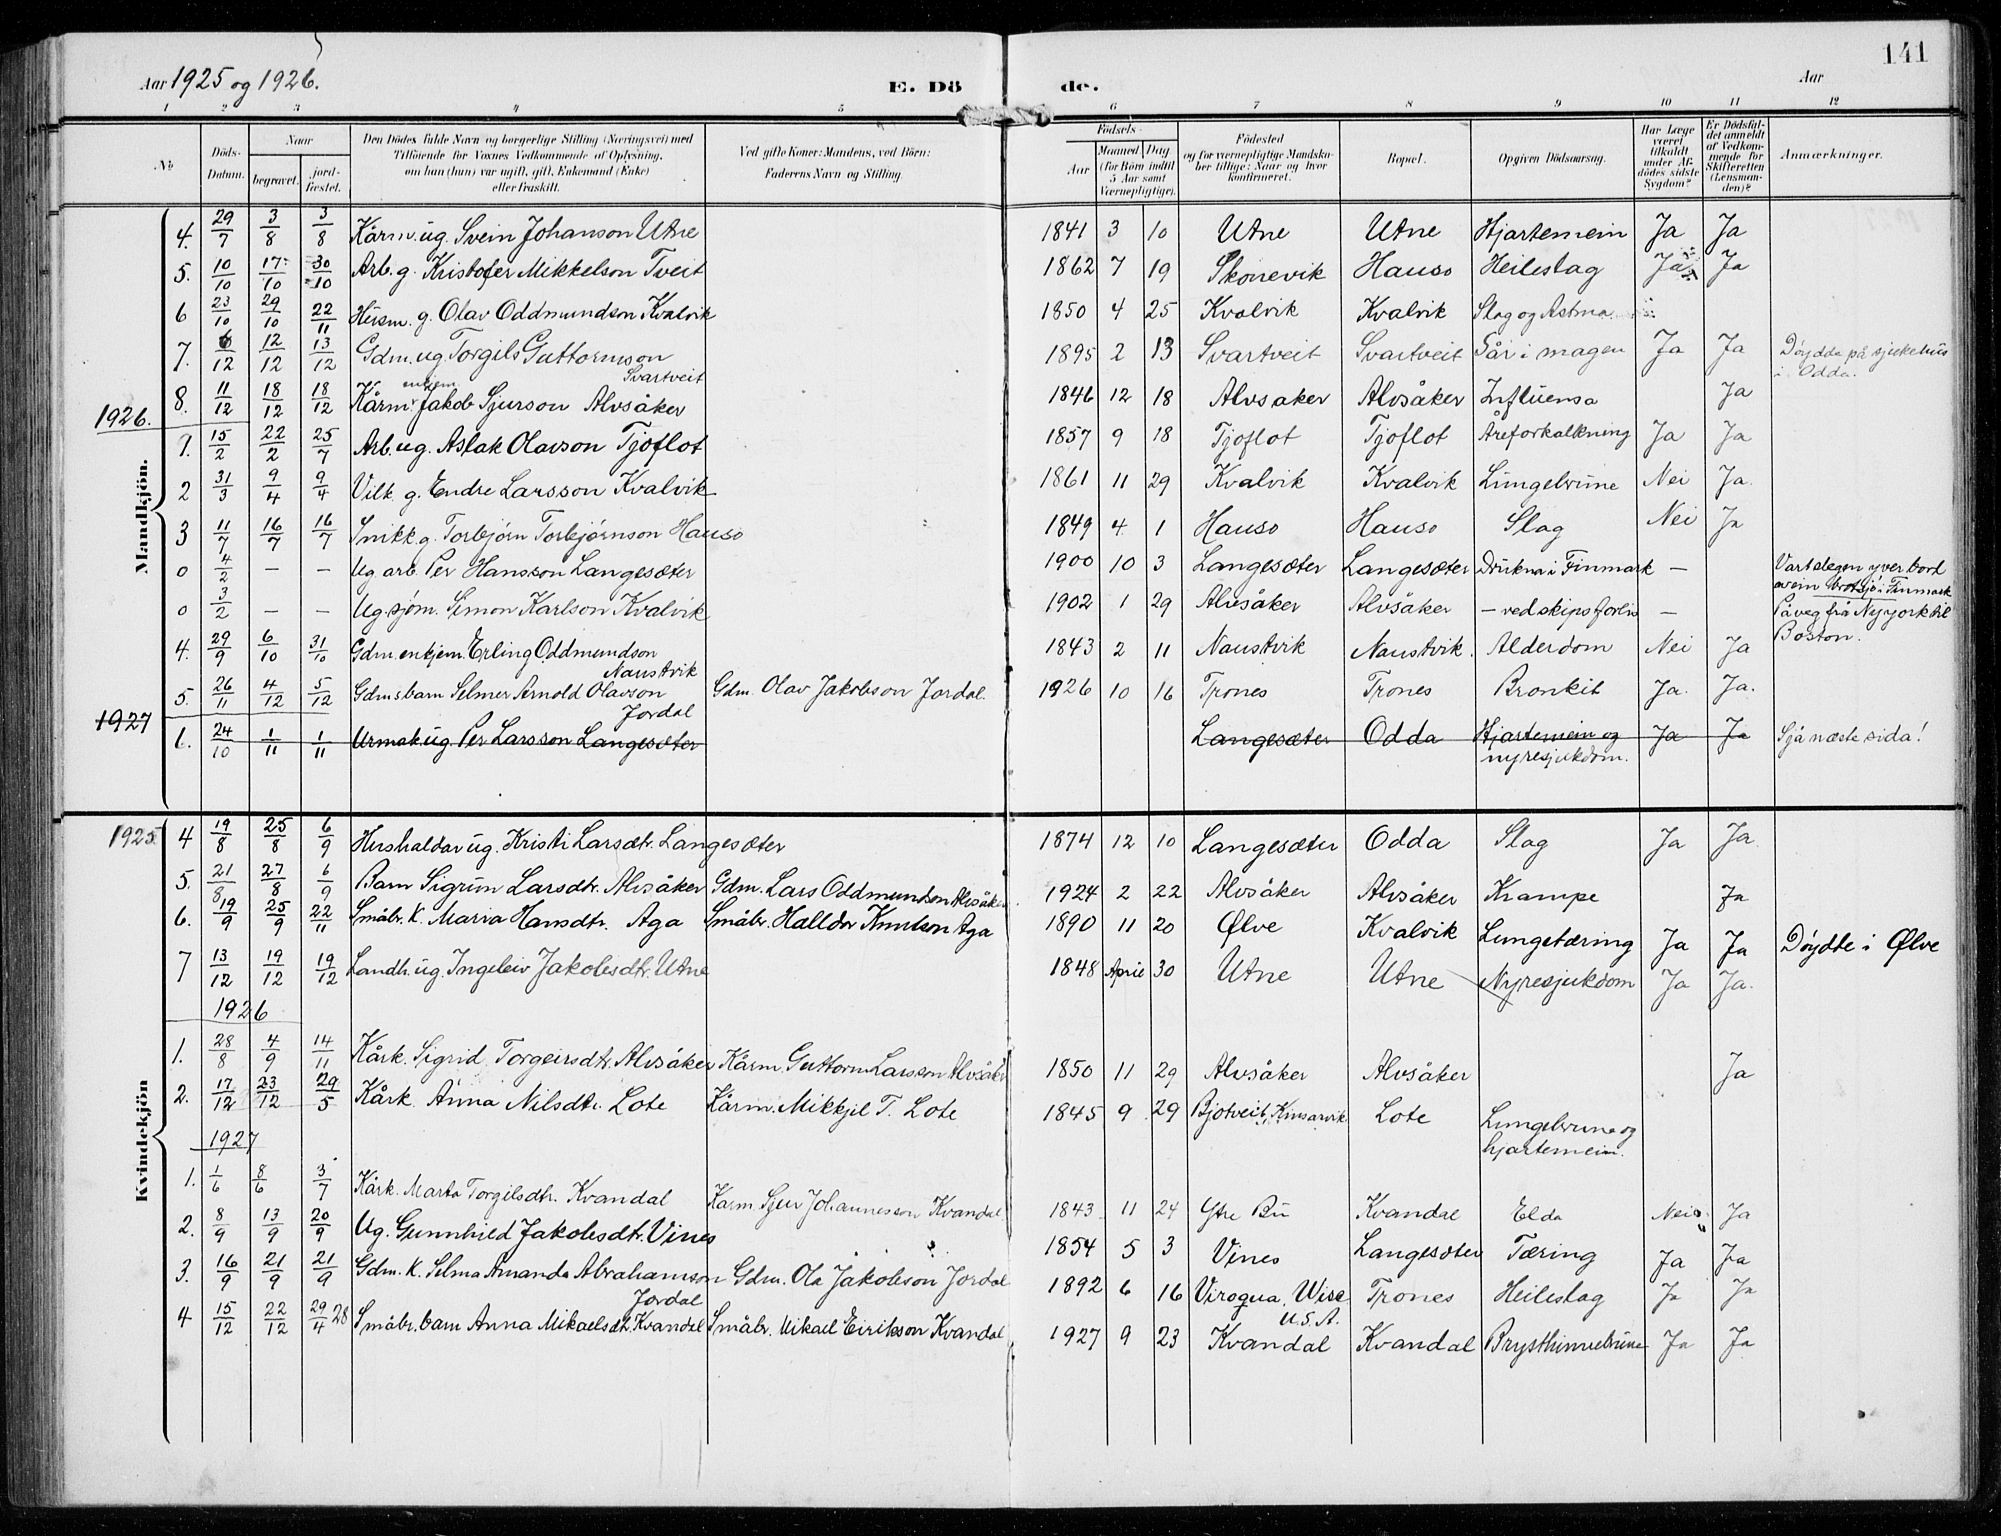 141
Aar 1925 og 1926. E. Dö de. Aar
1 2 3 4 5 6 7 8 9 10 11 12
№ Döds-Datum. Naar begravet. jord-fæstet. Den Dödes fulde Navn og borgerlige Stilling (Næringsvei) med Tilföiende for Voxnes Vedkommende af Oplysning, om han (hun) var ugift, gift, Enkemand (Enke) eller fraskilt. Ved gifte Koner: Mandens, ved Börn: Faderens Navn og Stilling. Födsels- Aar Maaned Dag (for Börn indtil 5 Aar samt Værnepligtige). Födested og for værnepligtige Mandskaber tillige: Naar og hvor konfirmeret. Bopæl. Opgiven Dödsaarsag. Har Læge været tilkaldt under Afdödes sidste Sygdom? Er Dödsfaldet anmeldt af Vedkommende for Skifteretten (Lensmanden)? Anmærkninger.
Mandkjön.
4. 29/7 3/8 3/8 Kårm. ug. Svein Johanson Utne 1841 3 10 Utne Utne Hjartemein Ja Ja
5. 10/10 17/10 30/10 Arb. g. Kristofer Mikkelson Tveit 1862 7 19 Skonevik Hauso Heileslag Ja Ja
6 23/10 29/10 22/11 Husm. g. Olav Oddmundson Kvalvik 1850 4 25 Kvalvik Kvalvik Slag og Astma
7. 6/12 12/12 13/12 Gdm. ug. Torgils Guttormson Svartveit 1895 2 13 Svartveit Svartveit Sår i magen Ja Ja Døydde på sjukehus i Odda.
8. 11/12 18/12 18/12 Kårm. enkjem Jakob Sjurson Alvsåker 1846 12 18 Alvsaker Alvsåker Influensa Ja
1926.
1. 15/2 22/2 25/7 Arb. ug. Aslak Olavson Tjoflot 1857 9 18 Tjoflot Tjoflot Åreforkalkning Ja Ja
2 31/3 9/4 9/4 Vilk. g. Endre Larsson Kvalvik 1861 11 29 Kvalvik Kvalvik Lungebrune Nei Ja.
3 11/7 16/7 16/7 Snikk. g. Torbjørn Torbjørnson Hauso 1849 4. 1 Hauso Hauso Slag Nei Ja
0 4/2 – – Ug. arb. Per Hansson Langesæter 1900 10 3 Langesæter Langesæter Drukna i Finmark – Vart slegen yver bord av ein brotsjø i Finmark
0 3/2 – – Ug. sjøm. Simon Karlson Kvalvik 1902 1 29 Alvsåker Alvsåker – ved skipsforlis – På veg frå Ny york til Boston.
4. 29/9 6/10 31/10 Gdm. enkjem. Erling Oddmundson Naustvik 1843 2 11 Naustvik Naustvik. Alderdom Nei Ja
5. 26/11 4/12 5/12 Gdms barn Selmer Arnold Olavson Jordal Gdm. Olav Jakobson Jordal. 1926 10 16 Trones Trones Bronkit Ja. Ja.
1927
6. 24/10 1/11 1/11 Urmak. ug. Per Larsson Langesæter Langesæter Odda Hjartemein og nyresjukdom. Ja Ja Sjå næste sida!
Kvindekjön
1925
4 19/8 25/8 6/9 Hushaldar ug. Kristi Larsdtr. Langesæter 1874 12 10 Langesæter Odda Slag Ja Ja
5. 21/8 27/8 6/9 Barn Sigrun Larsdtr. Alvsåker Gdm. Lars Oddmundson Alvsåker 1924 2 22 Alvsåker Alvsåker Krampe Ja
6. 19/9 25/9 22/11 Småbr. K. Maria Hansdtr. Aga Småbr. Halldor Knutson Aga 1890 11 20 Ølve Kvalvik Lungetæring Ja Ja Døydte i Ølve
7 13/12 19/12 19/12 Landh. ug. Ingeleiv Jakobsdtr. Utne 1848 April 30 Utne Utne Nyresjukdom Ja Ja.
1926
1. 28/8 4/9 14/11 Kårk. Sigrid Torgeirsdtr. Alvsåker Kårm. Guttorm Larsson Alvsåker 1850 11 29 Alvsåker Alvsåker Ja
2. 17/12 23/12 29/5 Kårk. Anna Nilsdtr. Lote Kårm. Mikkjel T. Lote 1845 9 29 Bjotveit, Kinsarvik Lote Lungebrune og hjartemein.
1927
1. 1/6 8/6 3/7 Kårk. Marta Torgilsdtr. Kvandal Kårm. Sjur Johannesson Kvandal 1843 11 24 Ytre Bu Kvandal Elda Nei Ja
2. 8/9 13/9 20/9 Ug. Gunnhild Jakobsdtr. Vines 1854 5 3 Vines Langesæter Tæring Ja Ja
3. 16/9 21/9 21/9 Gdm. K. Selma Amanda Abrahamson Jordal Gdm. Ola Jakobson Jordal 1892 6 16 Viroqua, Wisc. U.S.A. Trones Heileslag Ja Ja
4 15/12 22/12 29/4 28 Småbr. barn Anna Mikaelsdtr. Kvandal Småbr. Mikael Eirikson Kvandal 1927 9 23 Kvandal Kvandal Brysthinnebrune Ja Ja